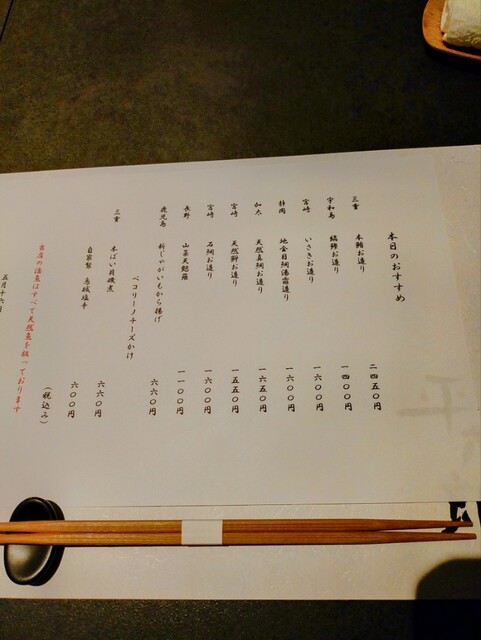 本日のおすすめ
三重 本鮪お造り 二四五〇円
宇和島 縞鰺お造り 一四〇〇円
宮崎 いさきお造り 一六〇〇円
静岡 地金目鯛湯霜造り 一六〇〇円
加太 天然真鯛お造り 一六五〇円
宮崎 天然鰤お造り 一五五〇円
宮崎 石鯛お造り 一六〇〇円
長野 山菜天麩羅 一一〇〇円
鹿児島 新じゃがいもから揚げ
ペコリーノチーズかけ 六六〇円
三重 本ばい貝磯煮 六六〇円
自家製 烏賊塩辛 六〇〇円
(税込み)
当店の活魚はすべて天然魚を扱っております
五月十六日